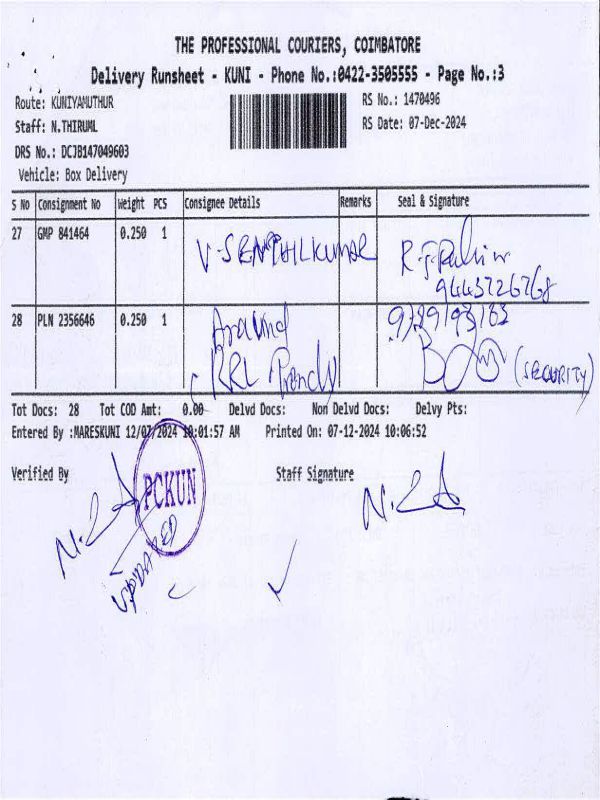 THE PROFESSIONAL COURIERS, COIMBATORE
Delivery Runsheet - KUNI - Phone No.:0422-3505555 - Page No.:3
Route: KUNIYAMUTHUR
RS No.: 1470496
Staff: N.THIRUML
RS Date: 07-Dec-2024
DRS No.: DCJB147049603
Vehicle: Box Delivery
S No Consignment No Weight PCS Consignee Details Remarks Seal & Signature
27 GMP 841464 0.250 1 V-SENTHILKUMAR
28 PLN 2356646 0.250 1 Aravind
KRL
(SECURITY)
Tot Docs: 28 Tot COD Amt: 0.00 Delvd Docs: Non Delvd Docs: Delvy Pts:
Entered By :MARESKUNI 12/07/2024 10:01:57 AM Printed On: 07-12-2024 10:06:52
Verified By Staff Signature
PCKUN